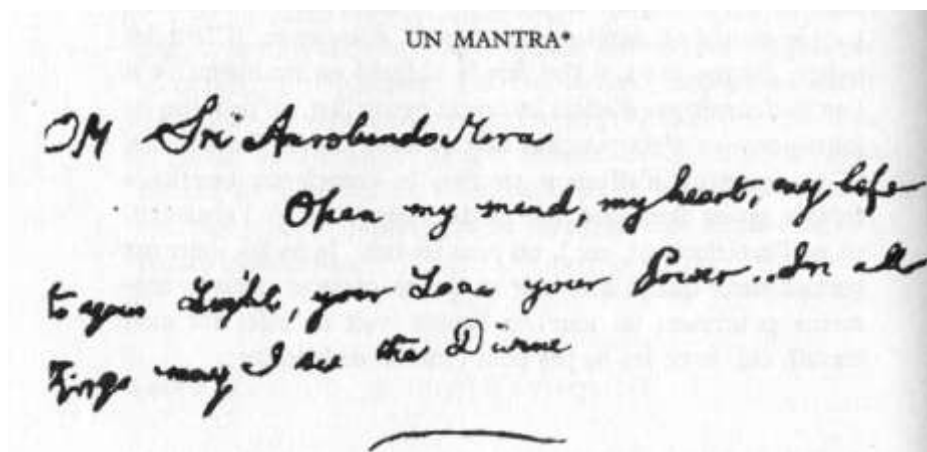 UN MANTRA*
OM Sri Aurobindo Mira
Open my mind, my heart, my life
to your Light, your Love your Power. In all
things may I see the Divine